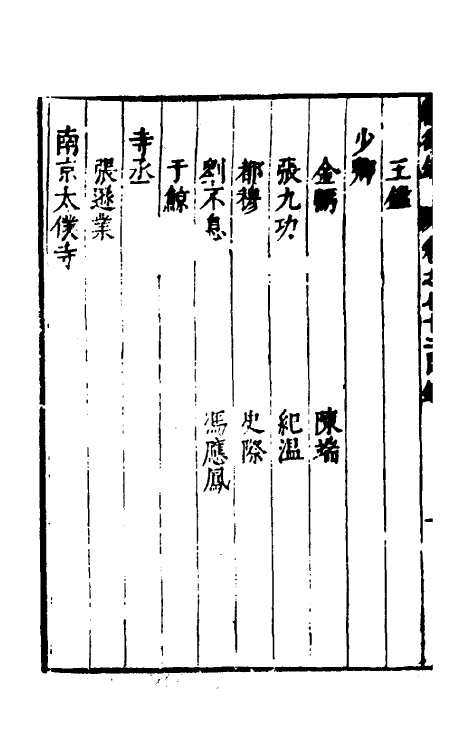 王鑑
少卿
金 陳端
張九功 紀溫
都穆 史際
劉不息 馮應鳳
于鯨
寺丞
張遜業
南京太僕寺